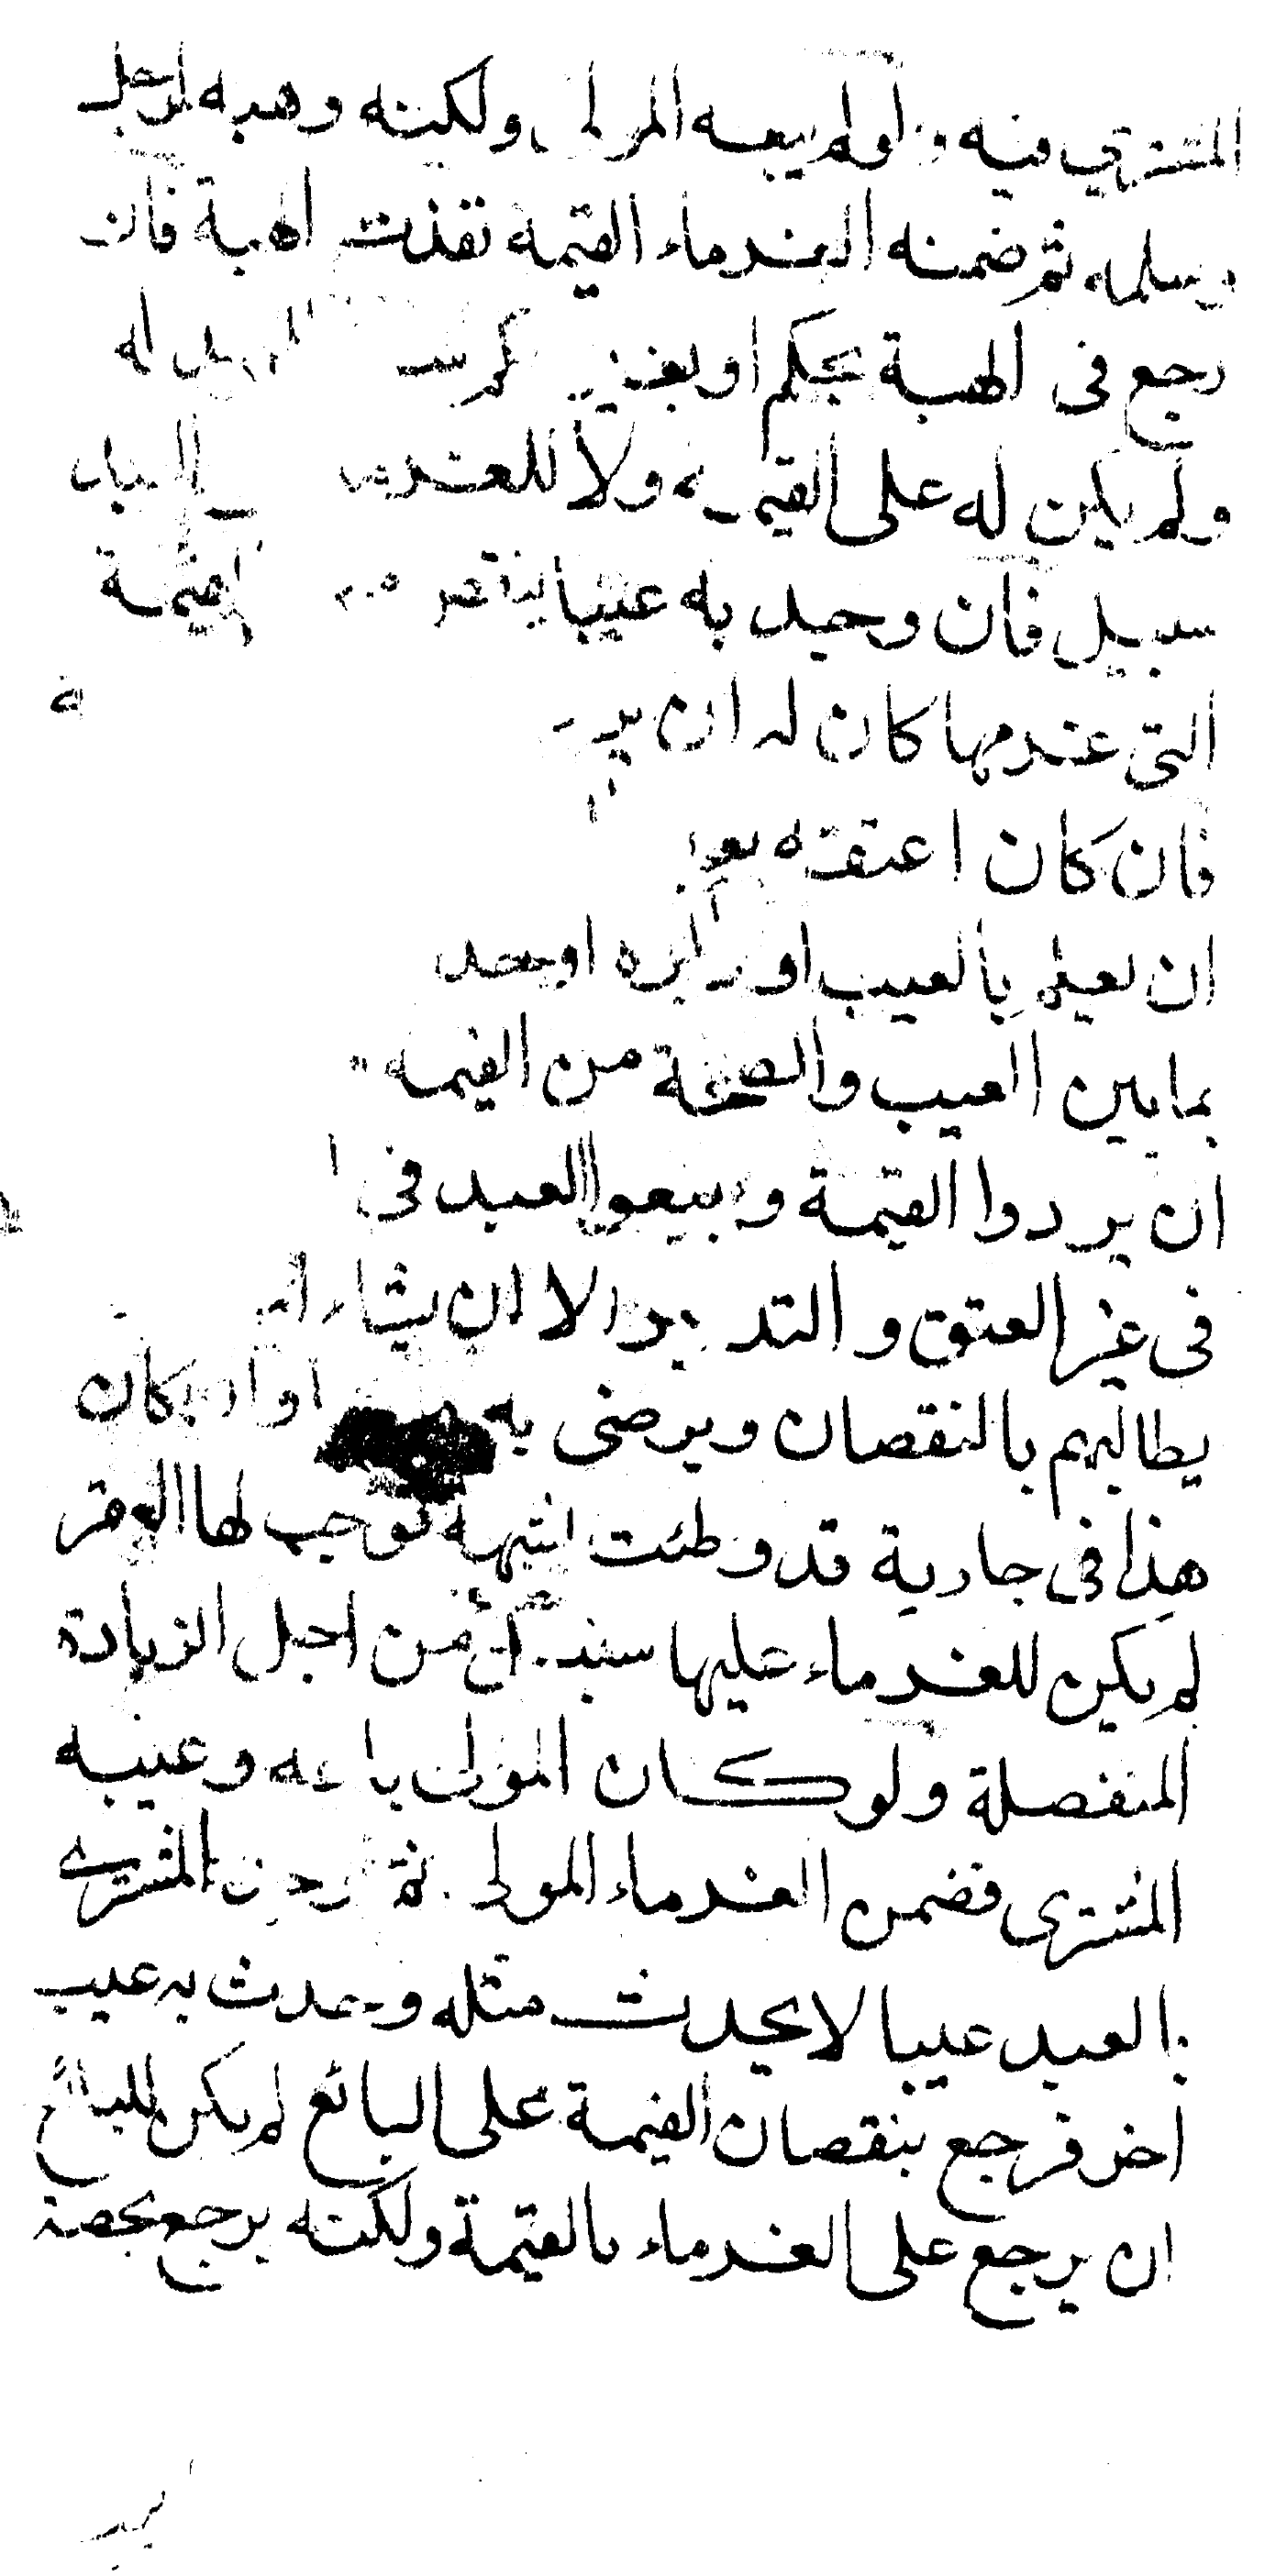 المشتري فيه ولو لم يبعه المولى ولكنه وهبه لرجل
وسلمه ثم ضمنه الغرماء القيمة نفذت الهبة فان
رجع في الهبة بحكم او بغير له
ولم يكن له على القيمة ولا للغرماء العبد
سبيل فان وجد به عيبا ينقص من القيمة
التي غرمها كان له ان
فان كان اعتقه بعد
ان يعلم بالعيب او دبره او وجد
بما بين العيب والصحة من القيمة
ان يردوا القيمة ويبيعوا العبد في
في غير العتق والتدبير الا ان يشاء
يطالبهم بالنقصان ويرضى به كان
هذا في جارية قد وطئت بشبهة فوجب لها العقر
لم يكن للغرماء عليها سبيل من اجل الزيادة
المنفصلة ولو كان المولى باعه وغيبه
المشتري فضمن الغرماء المولى ثم المشتري
بالعبد عيبا لا يحدث مثله وحدث به عيب
اخر فرجع بنقصان القيمة على البائع لم يكن للبائع
ان يرجع على الغرماء بالقيمة ولكنه يرجع بحصة